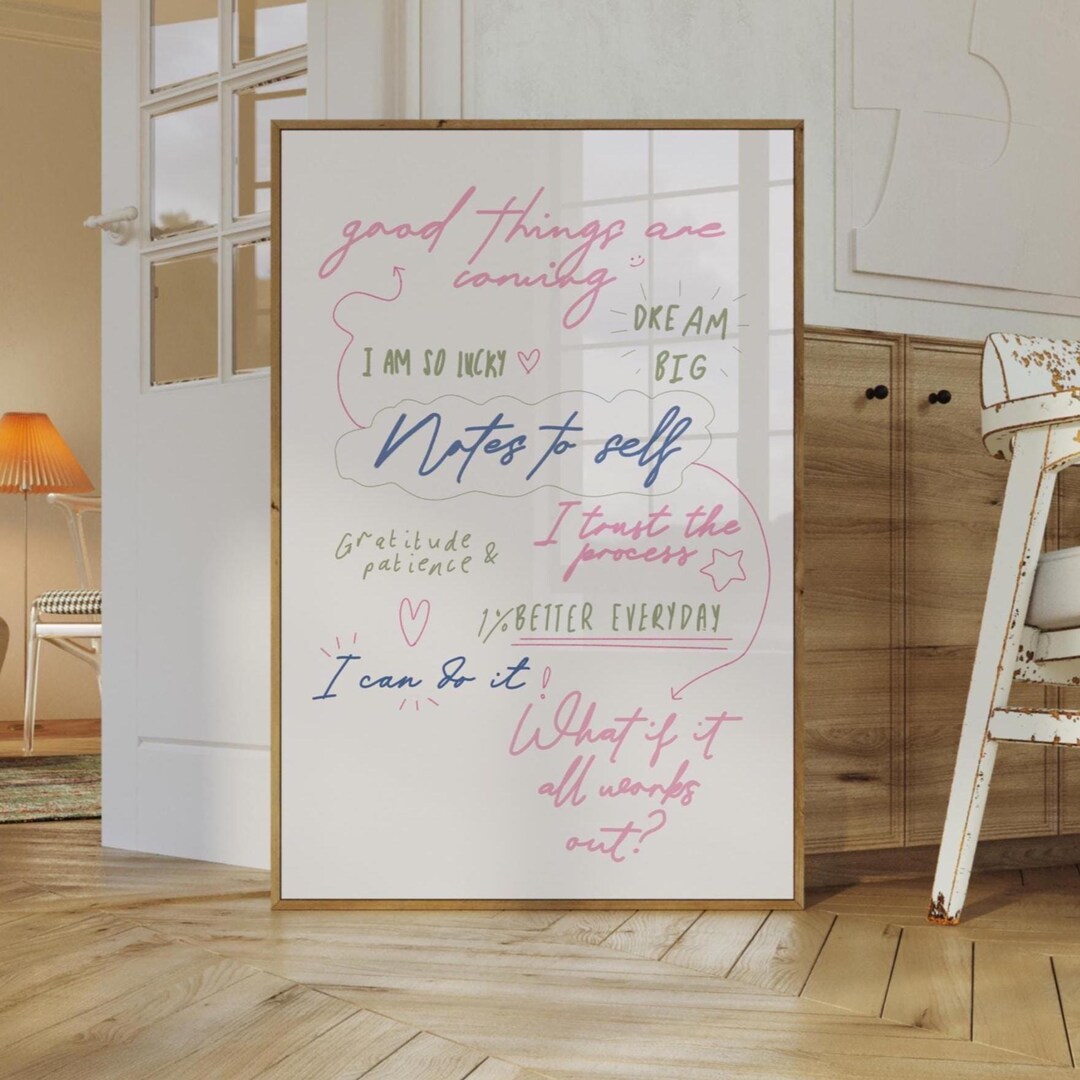 good things are
coming
DREAM
BIG
I AM SO LUCKY
Notes to self
I trust the
process
Gratitude
patience &
1% BETTER EVERYDAY
I can do it!
What if it
all works
out?